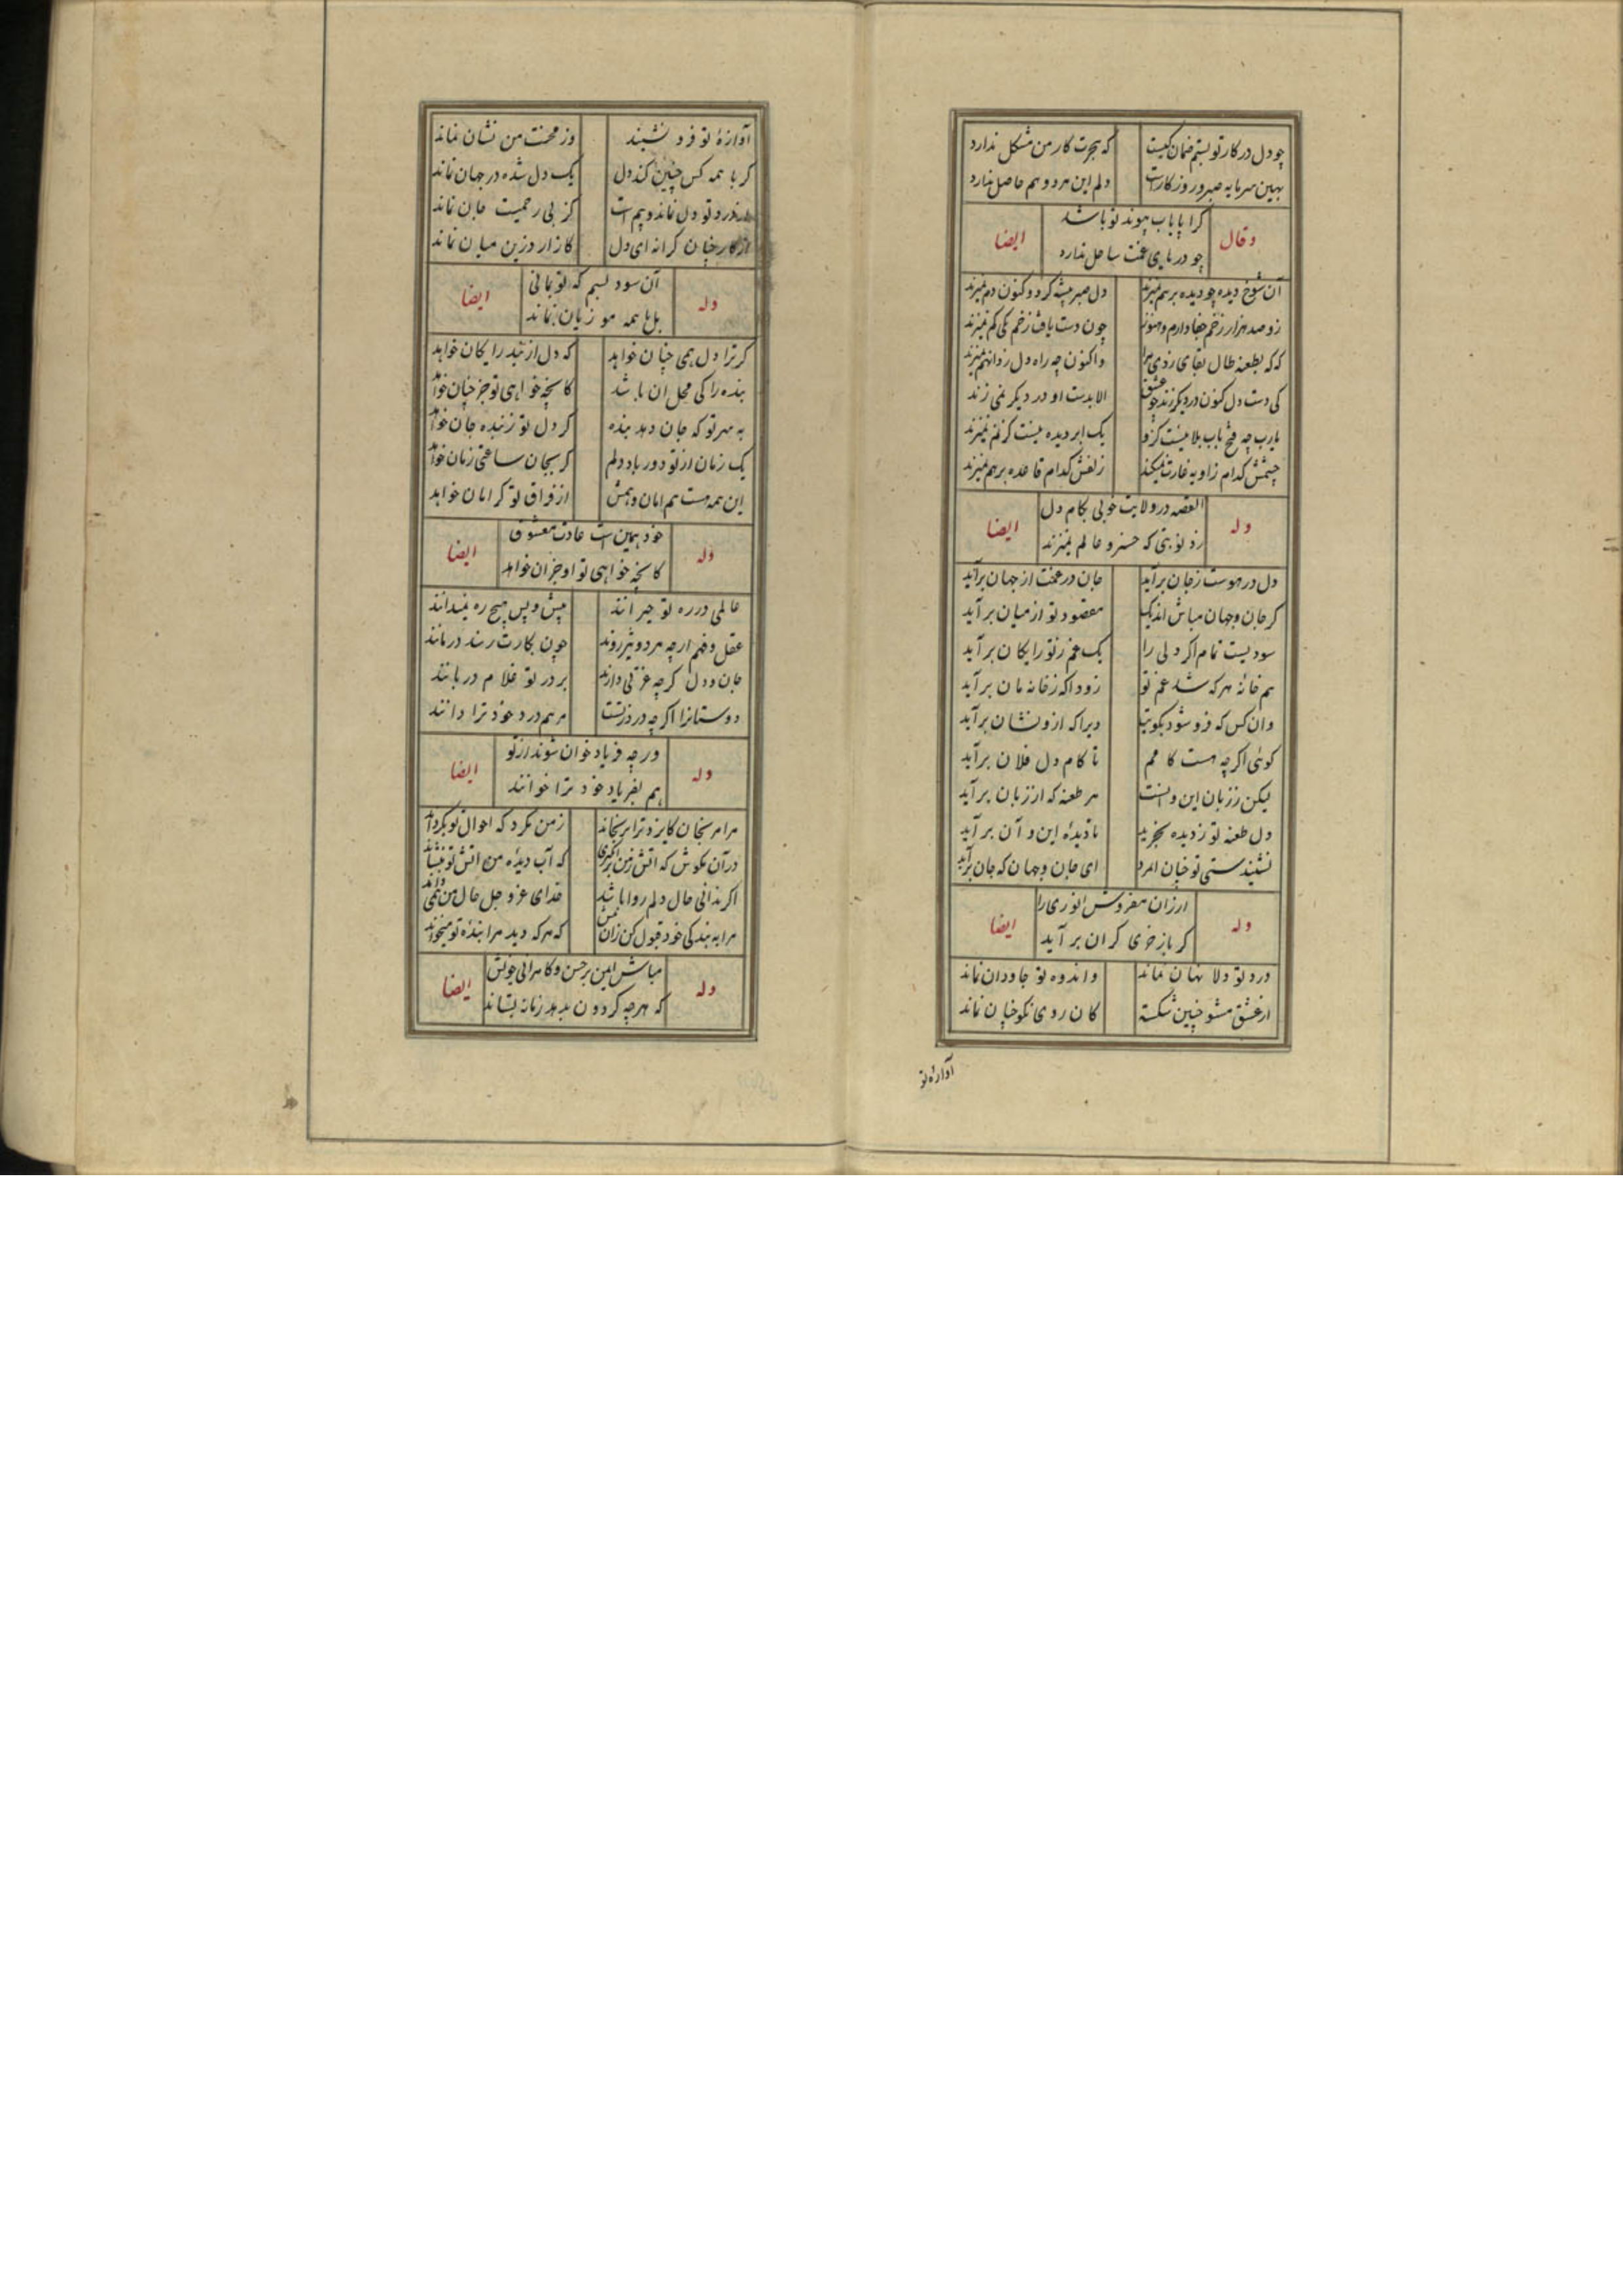 چو دل در کار تو بستم ضمان کیست که هجرت کار من مشکل ندارد
بهین سرمایه صبر و روزگارست دلم این هر دو هم حاصل ندارد
وقال کرا پایاب پیوند تو باشد ایضا
چو دریای غمت ساحل ندارد
آن شوخ دیده چو دیده بر هم نمیزند دل صبر پیشه کرد و کنون دم نمیزند
زو صد هزار زخم جفا دارم و هنوز چون دست یافت زخم یکی کم نمیزند
که که بطعنه طال بقای زدی مرا واکنون چه راه دل زد انهم نمیزند
کی دست دل کنون در دیگر زند چو عشق الا بدست او در دیگر نمی زند
یارب چه فتح باب بلا نیست کزو یک ابر دیده نیست که نم نمیزند
چشمش کدام زاویه غارت نمیکند زلفش کدام قاعده بر هم نمیزند
وله القصه در ولایت خوبی بکام دل ایضا
زد نوبتی که خسرو عالم نمیزند
دل در هوست ز جان برآید جان در غمت از جهان برآید
گر جان و جهان مباش اندیک مقصود تو از میان برآید
سودیست تمام اگر دلی را یک غم ز تو رایکان برآید
هم خانهٔ هر که شد غم تو زودا که ز خانه مان برآید
وان کس که فرو شود بکویت دیرا که ازو نشان برآید
کوئی اگر چه هست کا مم تا کام دل فلان برآید
لیکن ز زبان این و آنست هر طعنه که از زبان برآید
دل طعنه تو ز دیده بخرید تا دیدهٔ این و آن برآید
نشنیدستی تو خبان امرد ای جان و جهان که جان برآید
وله ارزان مفروش انوری را ایضا
گر باز خری کران برآید
درد تو دلا نهان نماند و اندوه تو جاودان نماند
از عشق مشو چنین شکسته کان روی نکو چنان نماند
آوازهٔ تو
آوازهٔ تو فرو نشیند وز محنت من نشان نماند
گر با همه کس چنین کند دل یک دل شده در جهان نماند
در درد تو دل نماند و بیم است کز بی رحمیت جان نماند
از کار جهان کرانه ای دل کازار درین میان نماند
وله آن سود بسم که تو بمانی ایضا
بل تا همه مو زیان نماند
گر ترا دل همی چنان خواهد که دل از بنده رایکان خواهد
بنده را کی محل ان باشد کانچه خواهی تو جز چنان خواهد
به مهر تو که جان دهد بنده گر دل تو ز بنده جان خواهد
یک زمان از تو دور باد دلم گر بجان ساعتی زمان خواهد
این همه هست هم امان دهمش از فراق تو گر امان خواهد
وله خود همین است عادت معشوق ایضا
کانچه خواهی تو او جز آن خواهد
عالمی در ره تو حیرانند پیش و پس هیچ ره نمیدانند
عقل و فهم ارچه هر دو تیز روند چون بکارت رسند در مانند
جان و دل گرچه عزتی دارند بر در تو غلام دربانند
دوستانرا اگر چه درد ز تست مرهم درد خود ترا دانند
وله ور چه فریاد خوان شوند از تو ایضا
هم بفریاد خود ترا خوانند
مرا مرنجان کایزد ترا برنجاند ز من مکرد که احوال تو بکرداند
در آن مکوش که اتش ز من برانکیزی که آب دیدهٔ من اتش تو بنشاند
اگر ندانی حال دلم روا باشد خدای عز و جل حال من همی داند
مرا به بندکی خود قبول کن زان پس که هر که دید مرا بندهٔ تو میخواند
وله مباش ایمن بر حسن و کامرانی خویش ایضا
که هر چه گردون بدهد زمانه بستاند